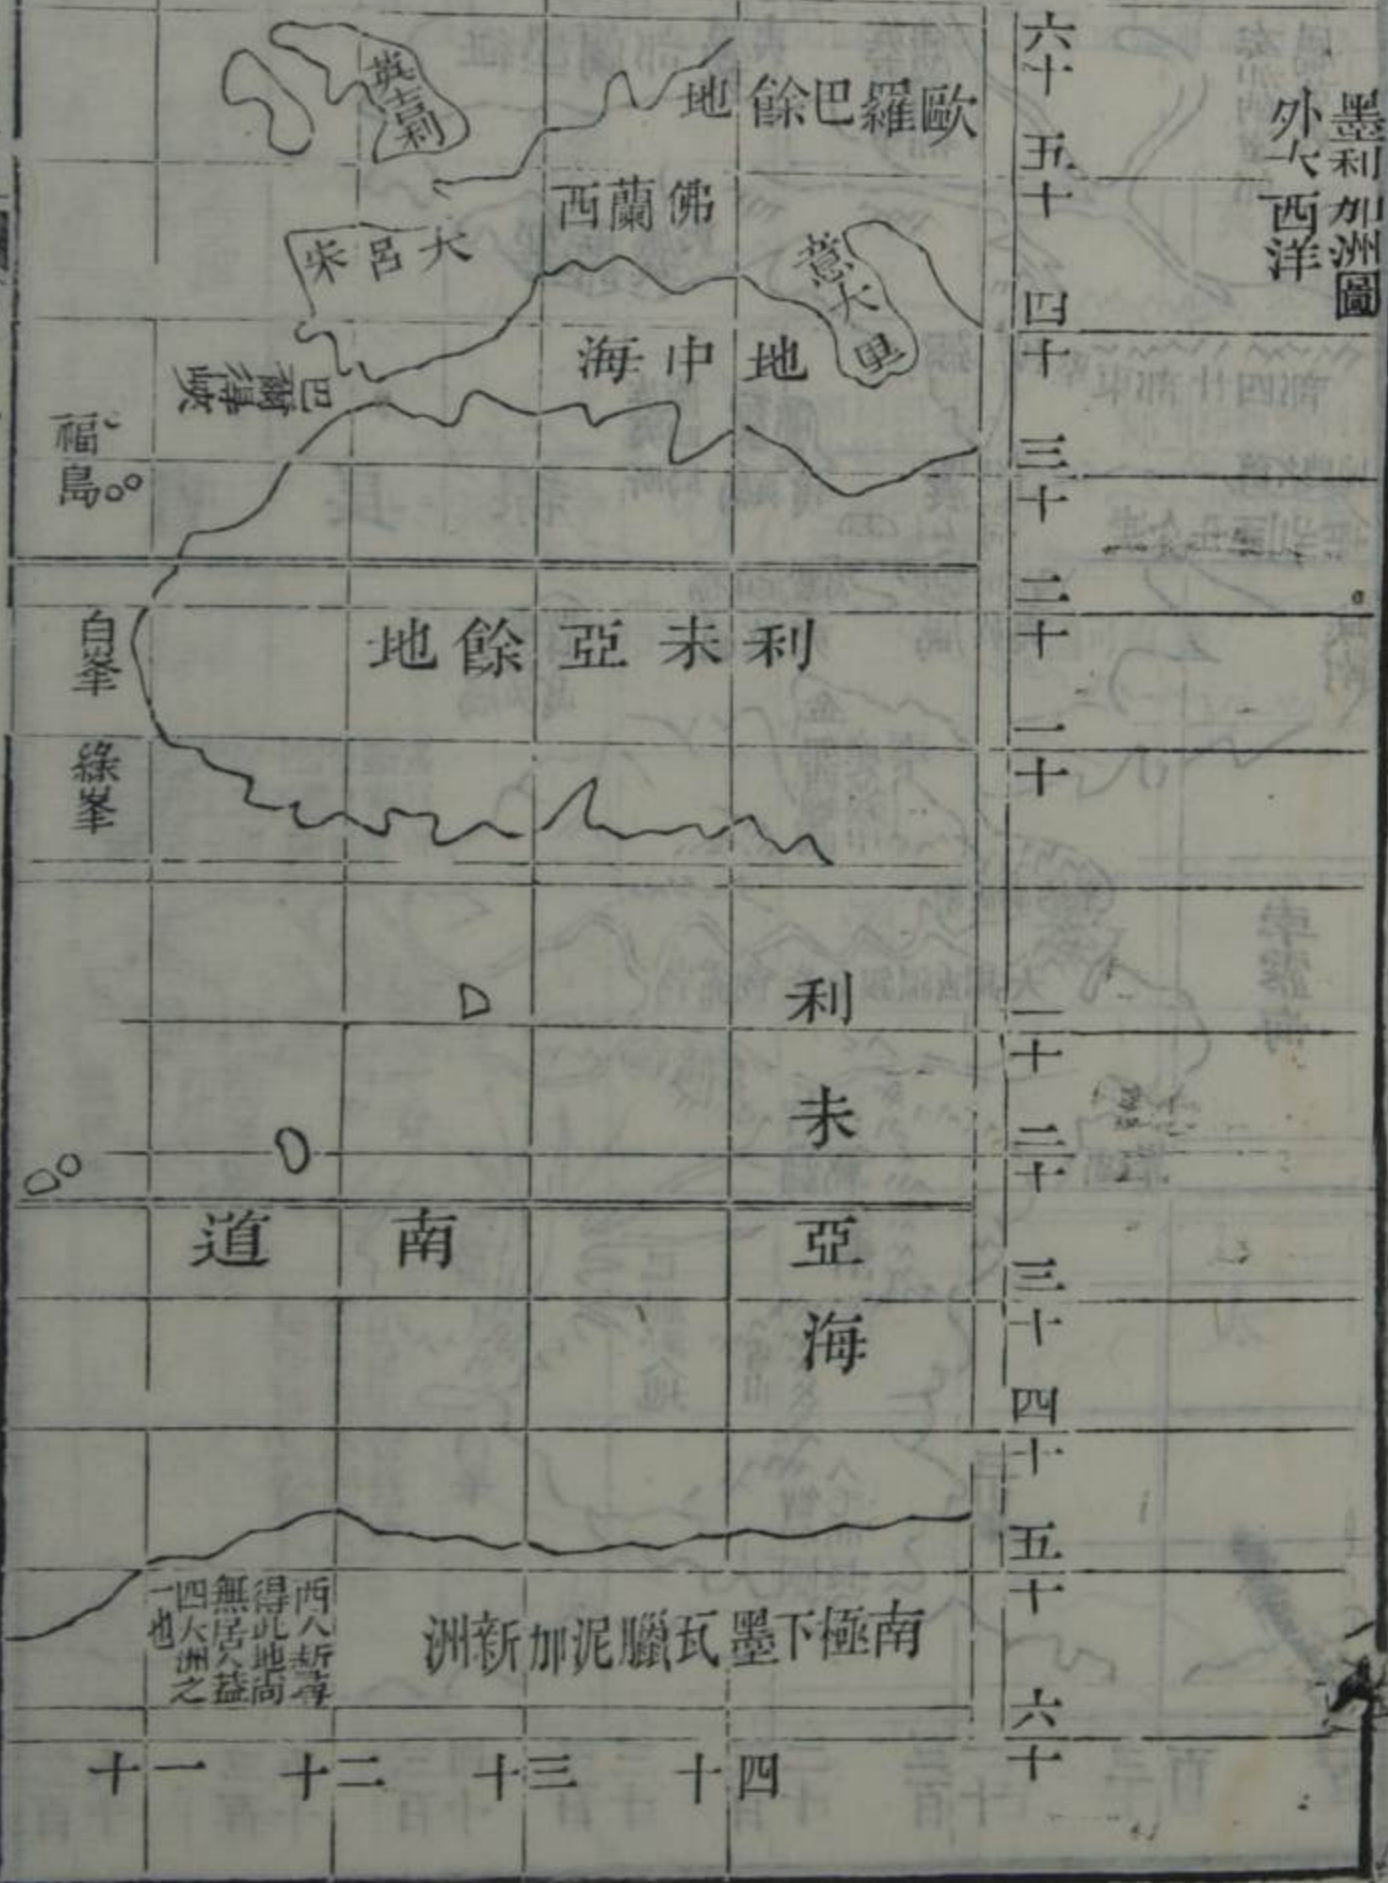 墨利加洲圖
外大西洋
六十
五十
四十
三十
二十
一十
一十
二十
三十
四十
五十
六十
歐羅巴餘地
英吉利
佛蘭西
大呂宋
意大里
地中海
巴爾得峽
福島
利未亞餘地
白峯
綠峯
利未亞海
南道
南極下墨瓦臘泥加新洲
西人新尋
得此地尚
無居人益
四大洲之
一也
四十
三十
二十
一十